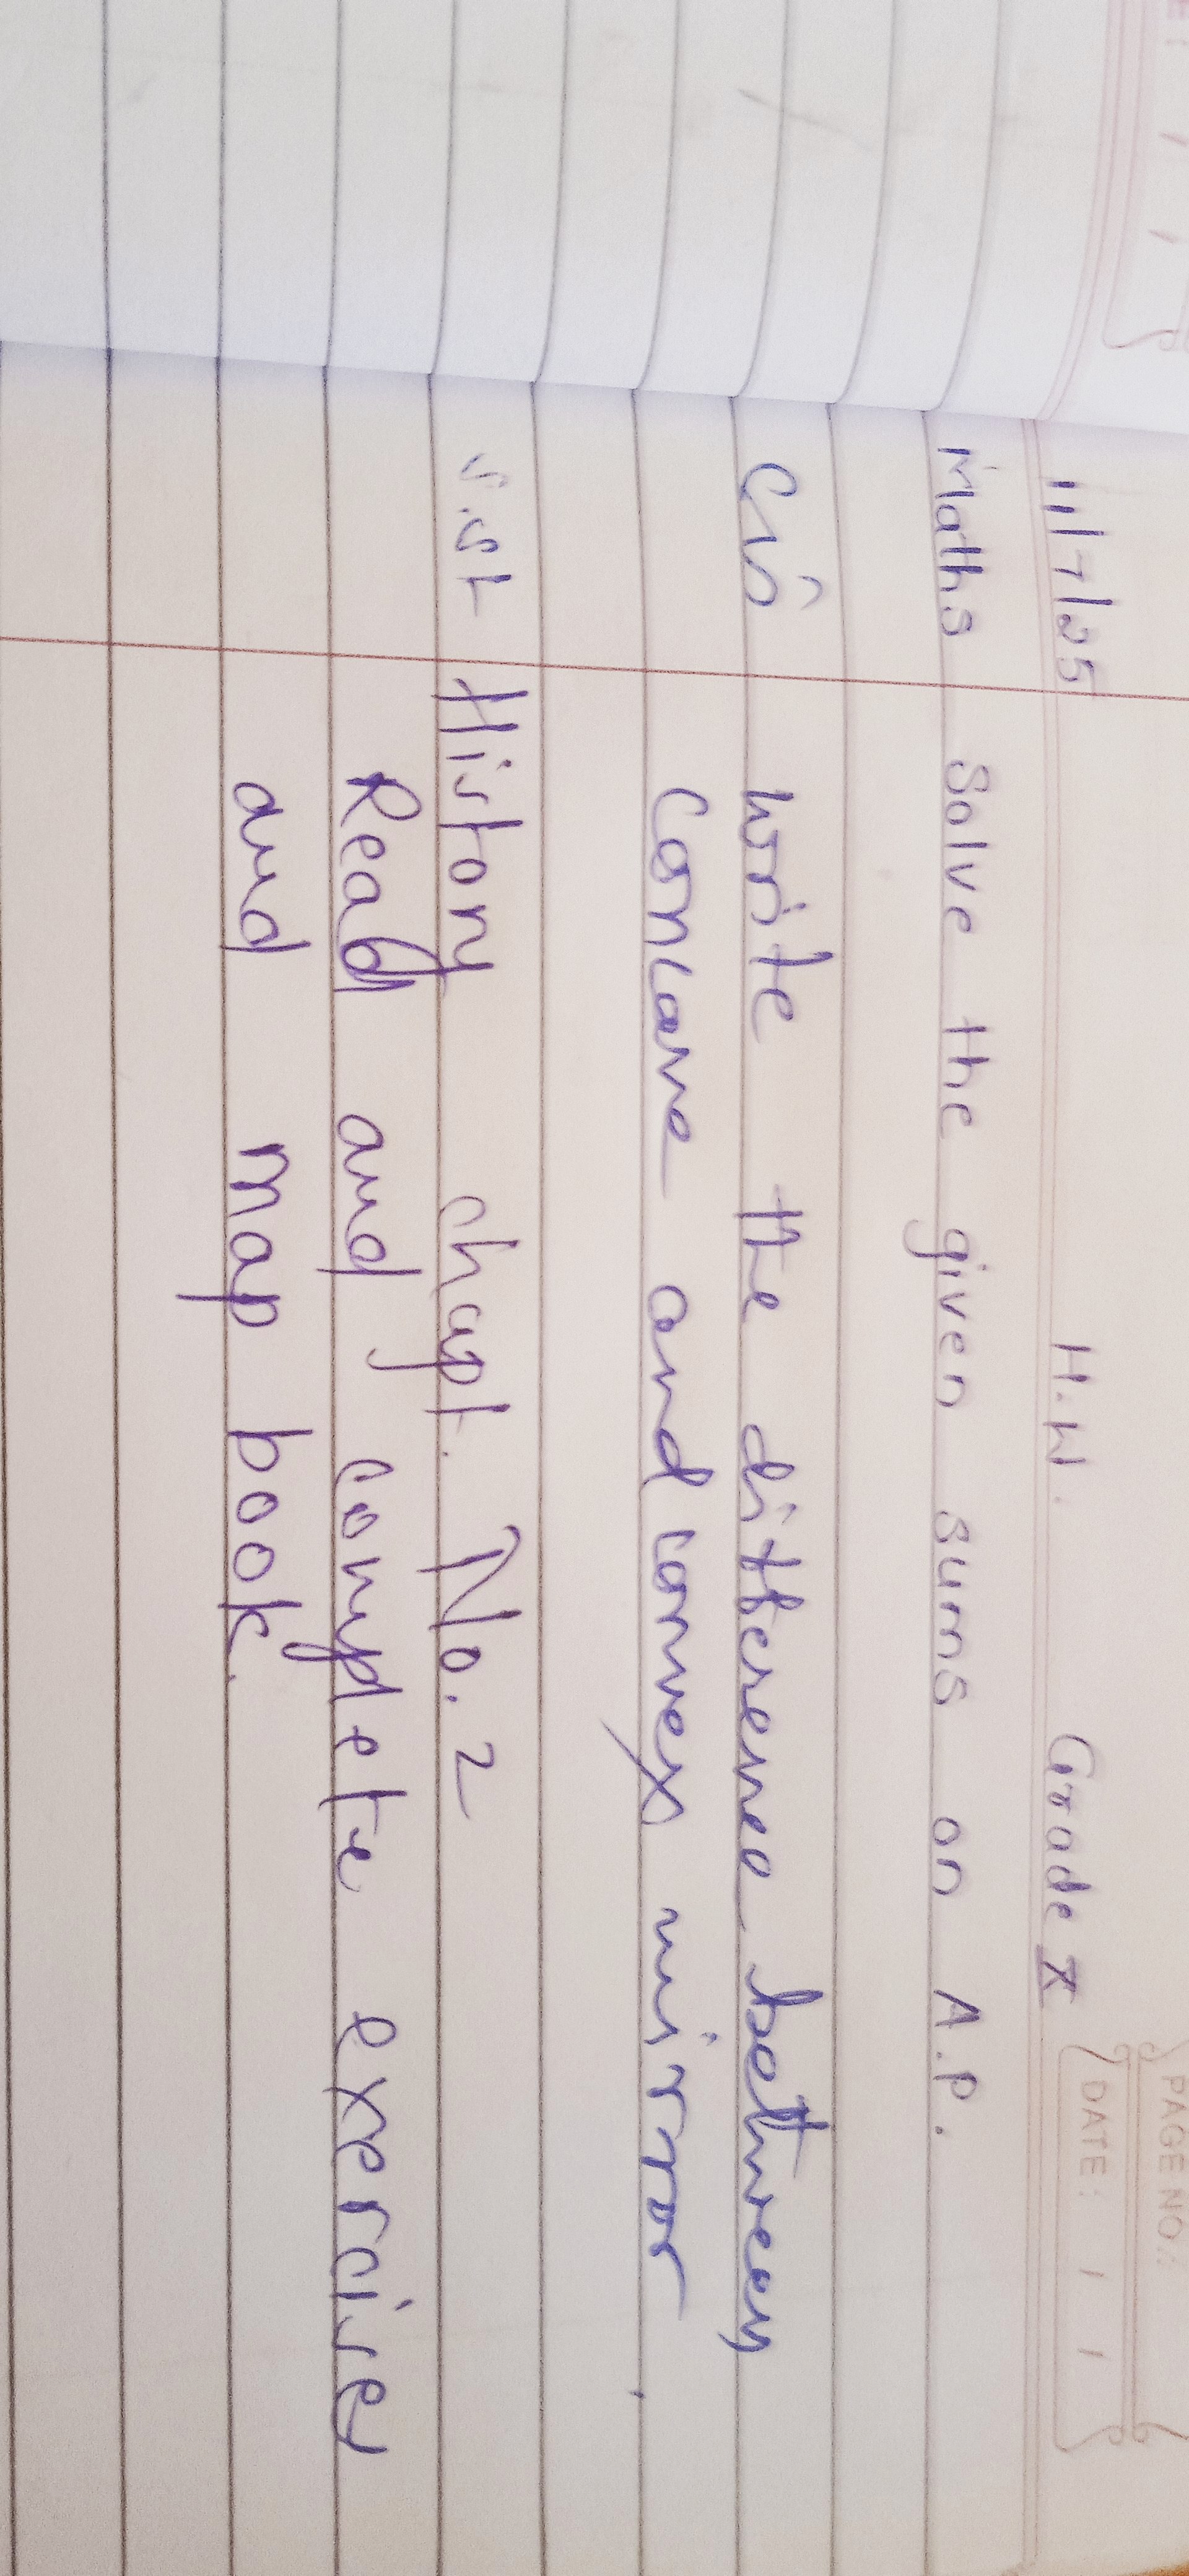 PAGE NO.:
DATE: / /
11/7/25 H.W. Grade X
Maths Solve the given sums on A.P.
write the difference between
concave and convex mirror.
S.St History chapt. No. 2
Read and complete exercises
and map book.